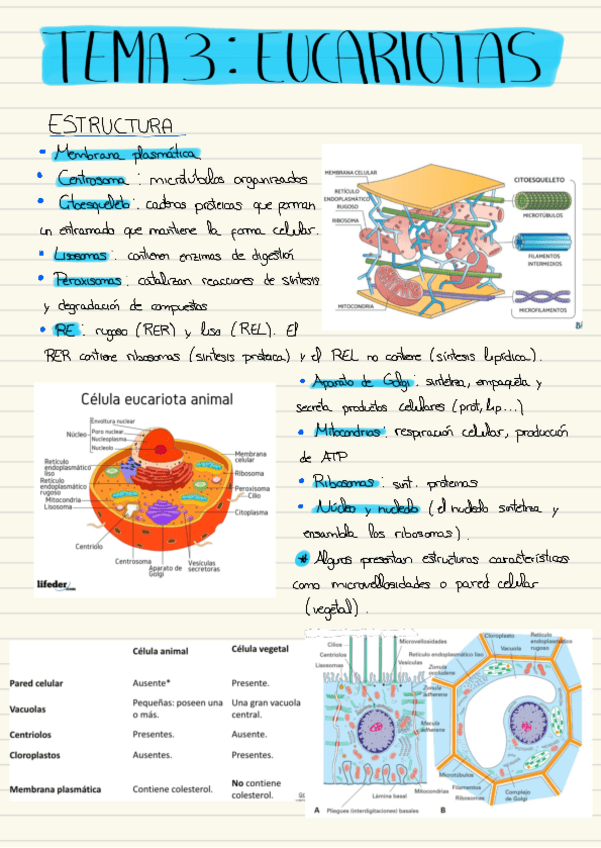 TEMA 3: EUCARIOTAS
ESTRUCTURA
• Membrana plasmática
• Centrosoma: microtúbulos organizados
• Citoesqueleto: cadenas proteicas que forman
un entramado que mantiene la forma celular.
• Lisosomas: contienen enzimas de digestión
• Peroxisomas: catalizan reacciones de síntesis
y degradación de compuestos
• RE: rugoso (RER) y liso (REL). El
RER contiene ribosomas (síntesis proteica) y el REL no contiene (síntesis lipídica).
MEMBRANA CELULAR
RETÍCULO
ENDOPLASMÁTICO
RUGOSO
RIBOSOMA
MITOCONDRIA
CITOESQUELETO
MICROTÚBULOS
FILAMENTOS
INTERMEDIOS
MICROFILAMENTOS
Célula eucariota animal
Núcleo
Envoltura nuclear
Poro nuclear
Nucleoplasma
Nucleolo
Retículo
endoplasmático
liso
Retículo
endoplasmático
rugoso
Mitocondria
Lisosoma
Centriolo
Centrosoma
Aparato de
Golgi
Vesículas
secretoras
Membrana
celular
Ribosoma
Peroxisoma
Cilio
Citoplasma
lifeder
• Aparato de Golgi: sintetiza, empaqueta y
secreta productos celulares (prot, lip...)
• Mitocondrias: respiración celular, producción
de ATP
• Ribosomas: sint. proteínas
• Núcleo y nucleolo (el nucleolo sintetiza y
ensambla los ribosomas).
* Algunas presentan estructuras características
como microvellosidades o pared celular
(vegetal).
Célula animal Célula vegetal
Pared celular Ausente* Presente.
Vacuolas Pequeñas: poseen una o más. Una gran vacuola central.
Centriolos Presentes. Ausente.
Cloroplastos Ausentes. Presentes.
Membrana plasmática Contiene colesterol. No contiene colesterol.
Cilios
Centriolos
Lisosomas
Microvellosidades
Retículo endoplasmático liso
Vesículas
Zonula
occludens
Zonula
adherens
Macula
adherens
Lámina basal
Mitocondrias
A Pliegues (interdigitaciones) basales
Cloroplasto
Vacuola
Retículo
endoplasmático
rugoso
Microtúbulos
Filamentos
Ribosomas
Complejo
de Golgi
B